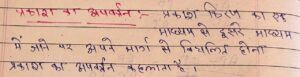 प्रकाश का अपवर्तन :- प्रकाश किरण का एक
माध्यम से दूसरे माध्यम
में जाने पर अपने मार्ग से विचलित होना
प्रकाश का अपवर्तन कहलाता है।